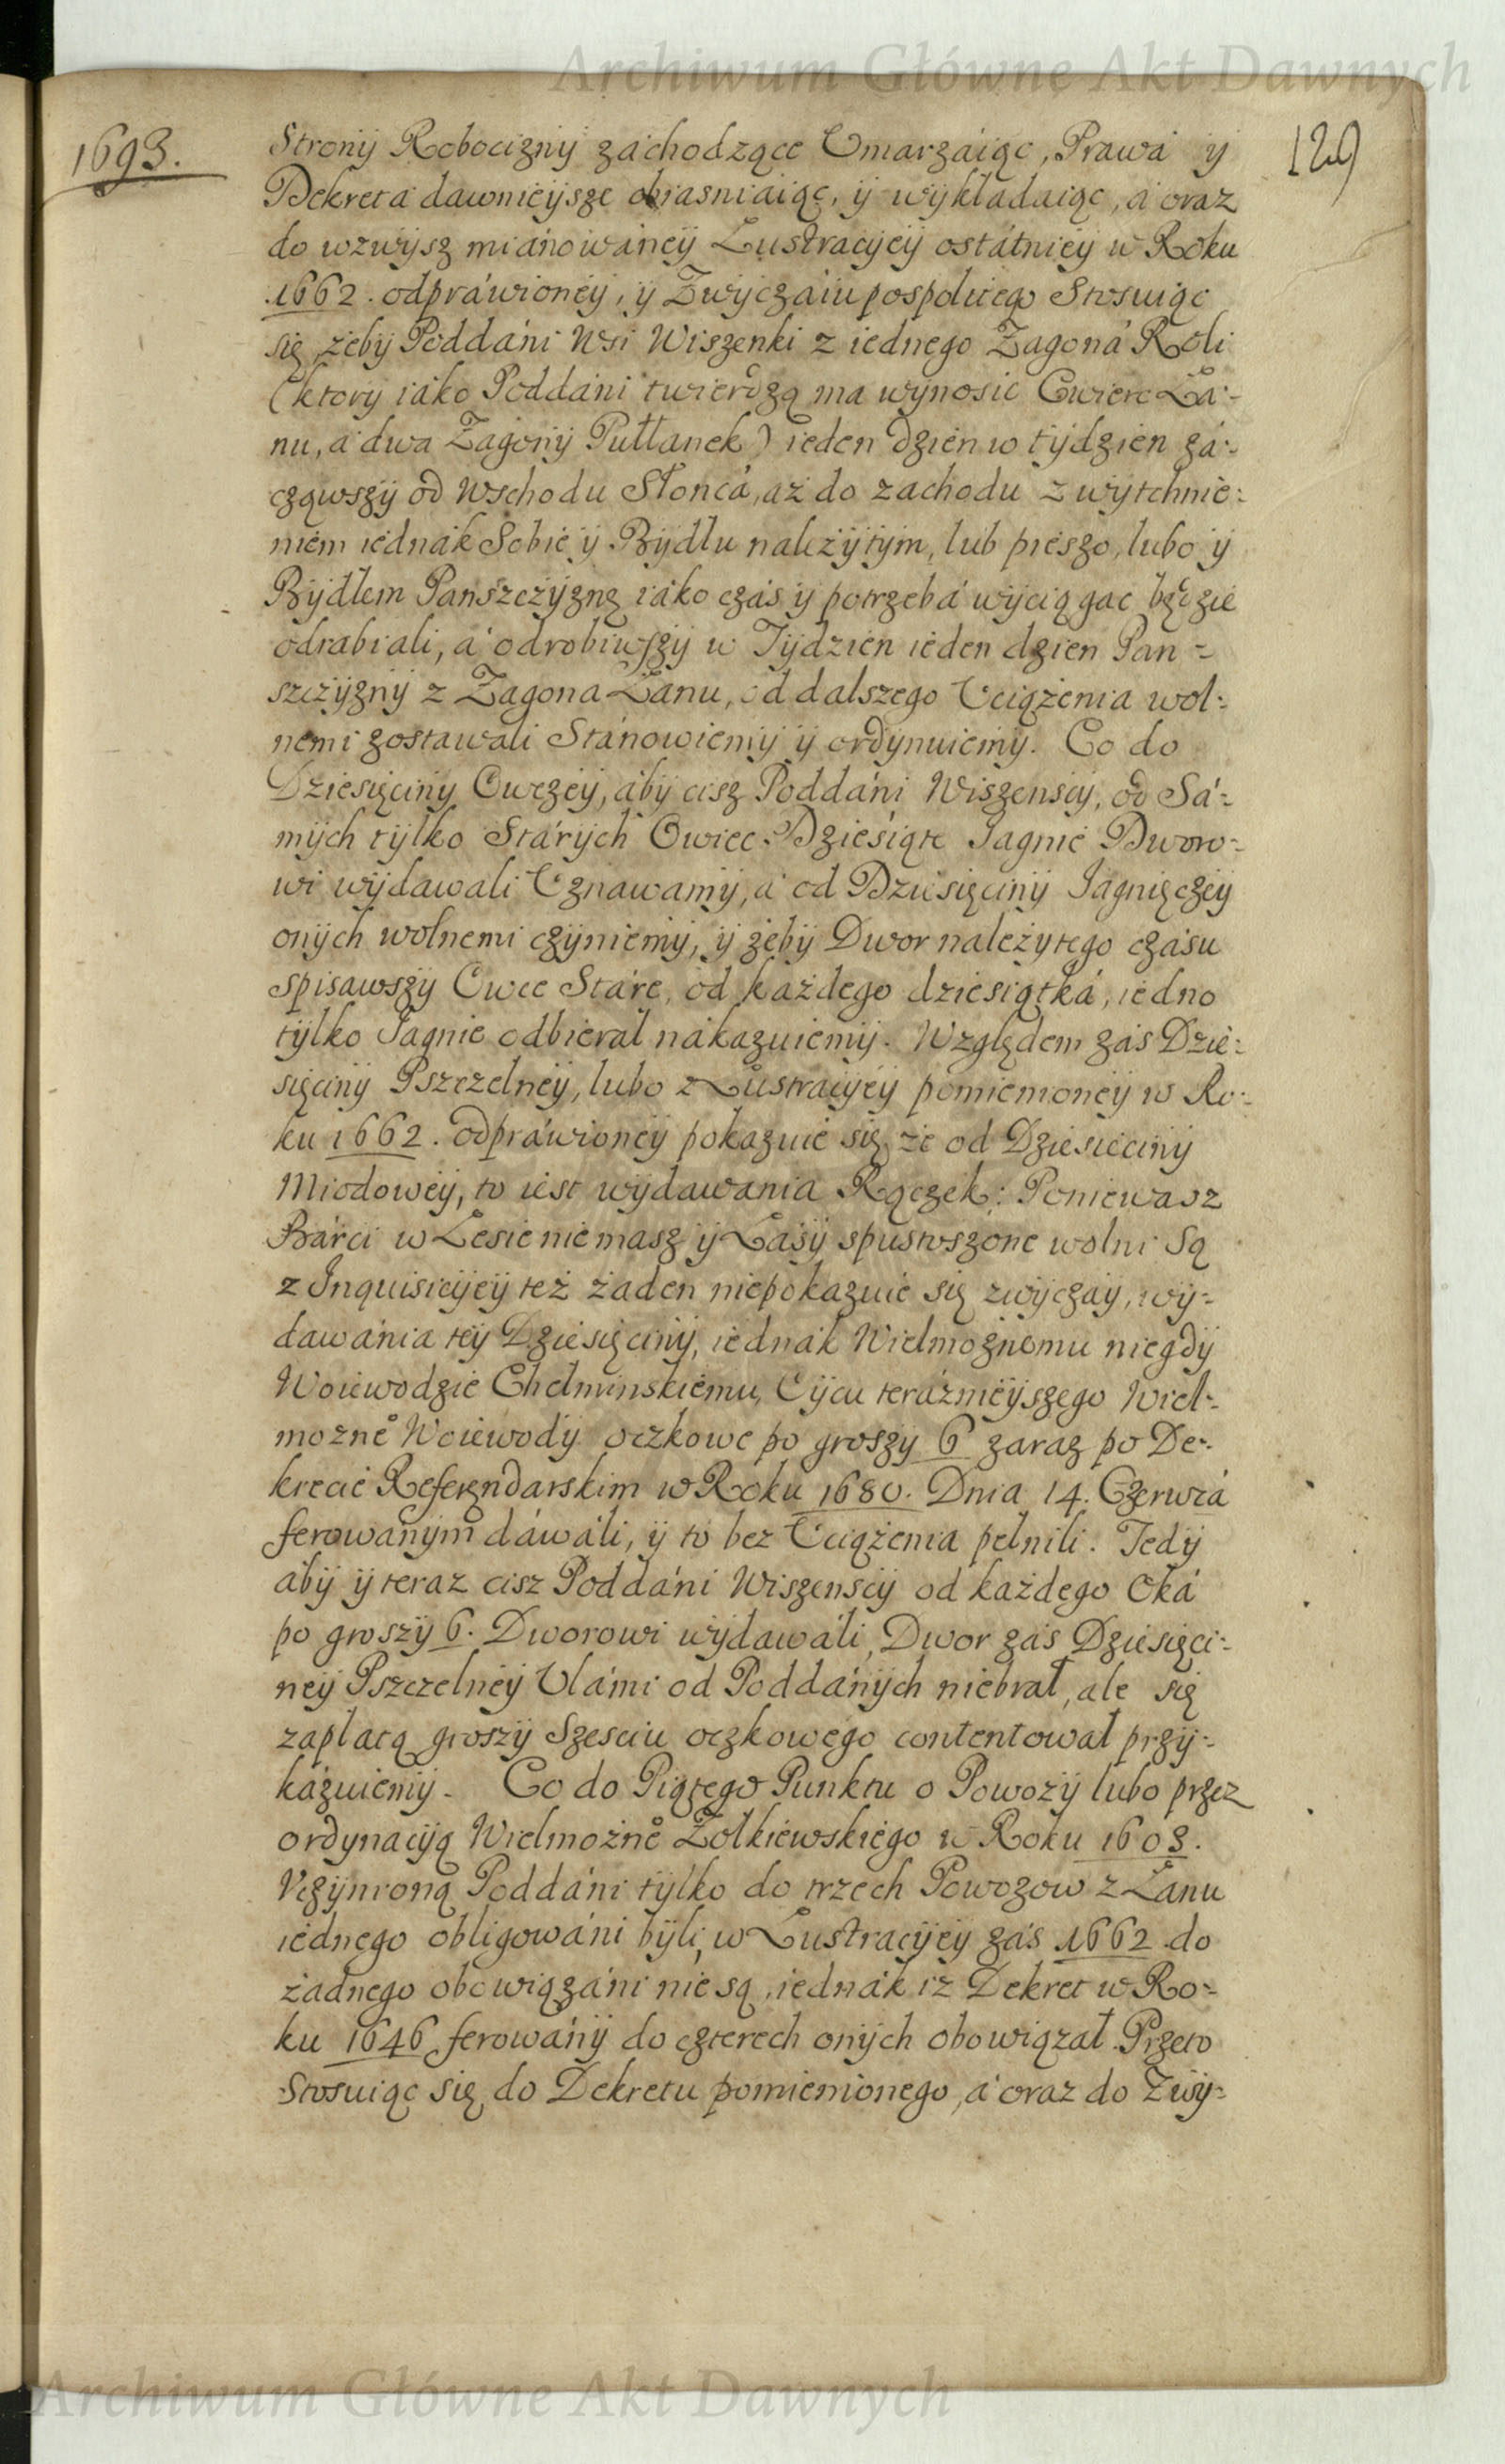 Archiwum Główne Akt Dawnych
1693.
129
Strony Robocizny zachodzące Umarzaiąc, Prawa y
Dekreta dawnieysze obiasniaiąc, y wykładaiąc, a oraz
do wzwysz miánowáney Lustracyey ostátniey w Roku
1662. odpráwioney, y Zwyczáiu pospolitego Stosuiąc
się, żeby Poddáni Wsi Wiszenki z iednego Zagoná Roli
(ktory iáko Poddáni twierdzą ma wynosic Cwierc Łá-
nu, á dwa Zagony Pułłanek) ieden dzien w tydzien zá-
cząwszy od Wschodu Słońcá, aż do zachodu z wytchnie-
niem iednák Sobie y Bydłu należytym, lub pieszo, lubo y
Bydłem Panszczyzną iáko czás y potrzebá wyciągac będzie
odrabiali, á odrobiwszy w Tydzien ieden dzien Pan-
szczyzny z Zagona Łanu, od dalszego Uciążenia wol-
nemi zostawali Stánowiemy y ordynuiemy. Co do
Dziesięciny Owczey, áby cisz Poddáni Wiszenscy, od Sá-
mych tylko Stárych Owiec Dziesiąte Jagnie Dworo-
wi wydawali Uznawamy, á od Dziesięciny Jagnięczey
onych wolnemi czyniemy, y żeby Dwor należytego czásu
spisawszy Owce Stáre, od każdego dziesiątká, iedno
tylko Jagnie odbierał nákazuiemy. Względem zás Dzie-
sięciny Pszczelney, lubo z Lustracyey pomienioney w Ro-
ku 1662. odpráwioney pokazuie się, że od Dziesieciny
Miodowey, to iest wydawania Rączek: Poniewasz
Bárci w Lesie nie masz y Lásy spustoszone wolni Są
z Inquisicyey też żaden niepokazuie się zwyczáy, wy-
dawánia tey Dziesięciny, iednák Wielmożnemu niegdy
Woiewodzie Chełminskiemu, Oycu teráznieyszego Wiel-
możne° Woiewody oczkowe po groszy 6 zaraz po De-
krecie Referendarskim w Roku 1680. Dnia 14. Czerwcá
ferowanym dáwáli, y to bez Uciążenia pełnili. Tedy
áby y teraz cisz Poddáni Wiszenscy od każdego Oká
po groszy 6. Dworowi wydawáli, Dwor zás Dziesięci-
ney Pszczelney Ulámi od Poddánych niebrał, ale się
zapłatą groszy Szesciu oczkowego contentował przy-
kázuiemy. Co do Piątego Punktu o Powozy lubo przez
ordynacyą Wielmożne° Żołkiewskiego w Roku 1608.
Uczynioną Poddáni tylko do trzech Powozow z Łanu
iednego obligowáni byli, w Lustracyey zás 1662. do
żadnego obowiązáni nie są, iednák iż Dekret w Ro-
ku 1646 ferowány do czterech onych obowiązał. Przeto
Stosuiąc się do Dekretu pomienionego, á oraz do Zwy-
Archiwum Główne Akt Dawnych